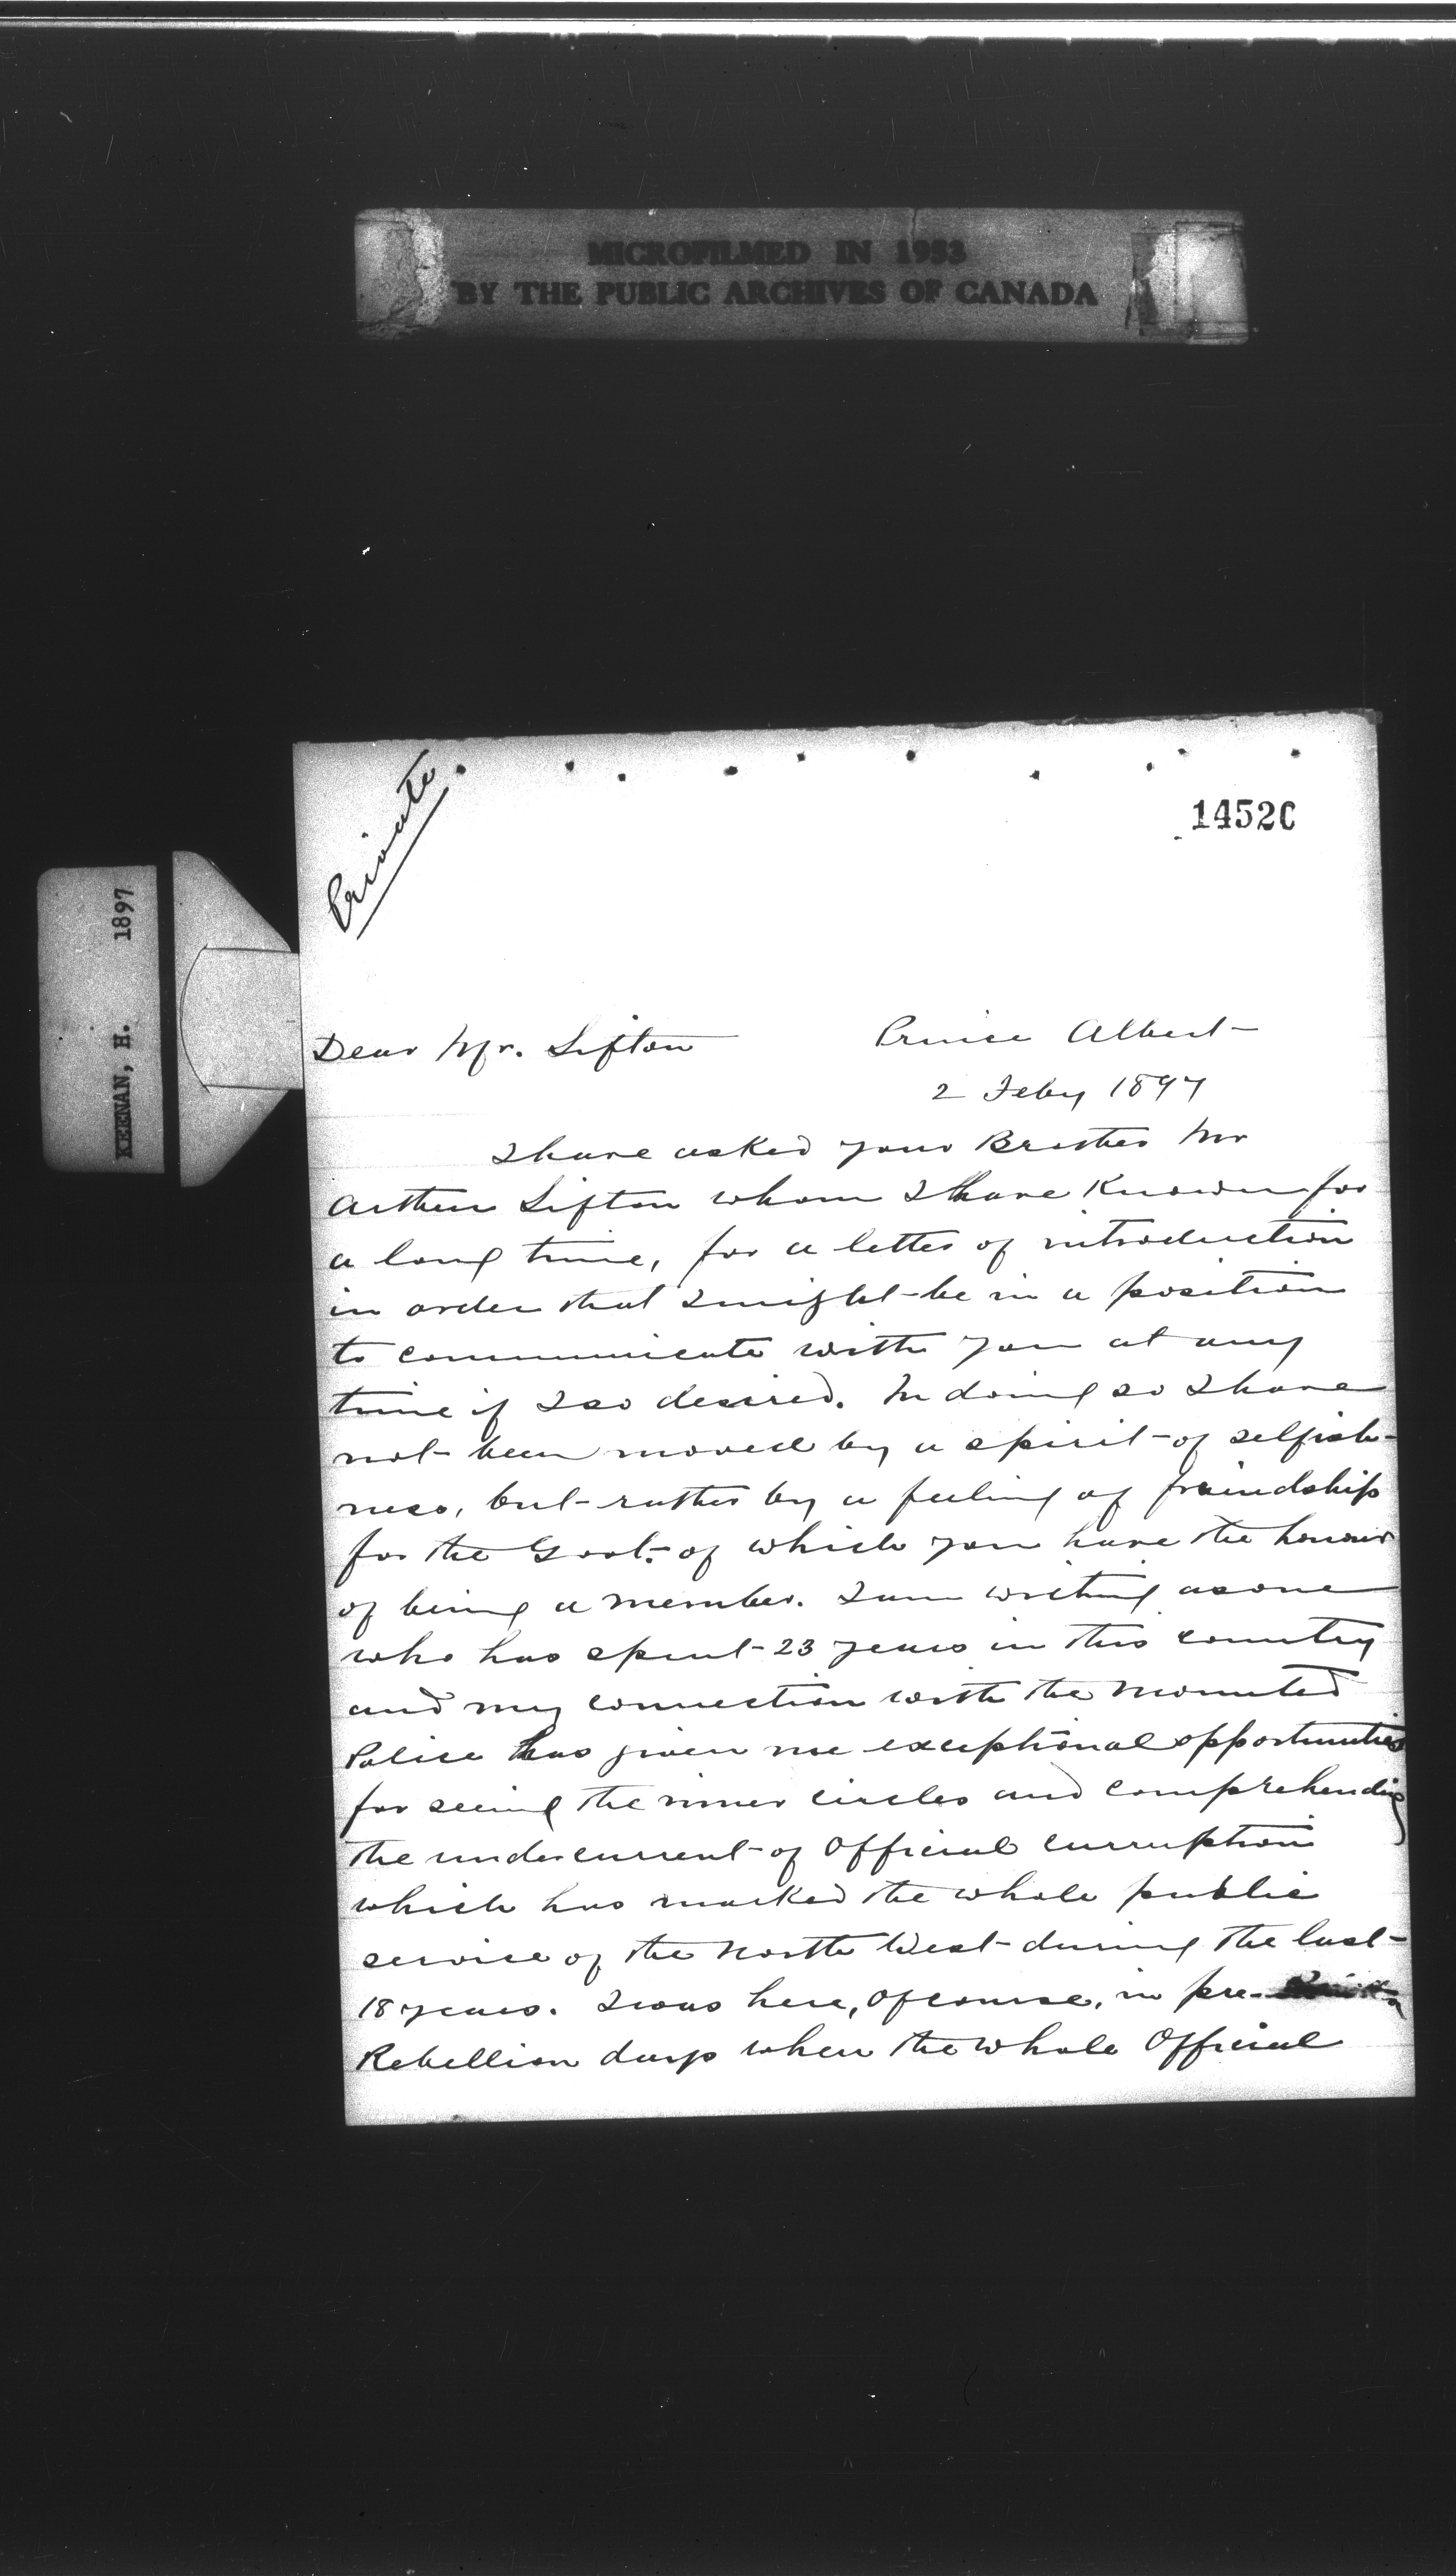 MICROFILMED IN 1953
BY THE PUBLIC ARCHIVES OF CANADA
KEENAN, H. 1897
Private
14520
Dear Mr. Sifton
Prince Albert
2 Feby 1897
I have asked your Brother Mr
Arthur Sifton whom I have Known for
a long time, for a letter of introduction
in order that I might be in a position
to communicate with you at any
time if I so desired. In doing so I have
not been moved by a spirit of selfish-
ness, but rather by a feeling of friendship
for the Govt. of which you have the honour
of being a member. I am writing as one
who has spent 23 years in this country
and my connection with the Mounted
Police has given me exceptional opportunities
for seeing the inner circles and comprehending
the undercurrent of Official curruption
which has marked the whole public
service of the North West during the last
18 years. I was here, of course, in pre-
Rebellion days when the whole Official